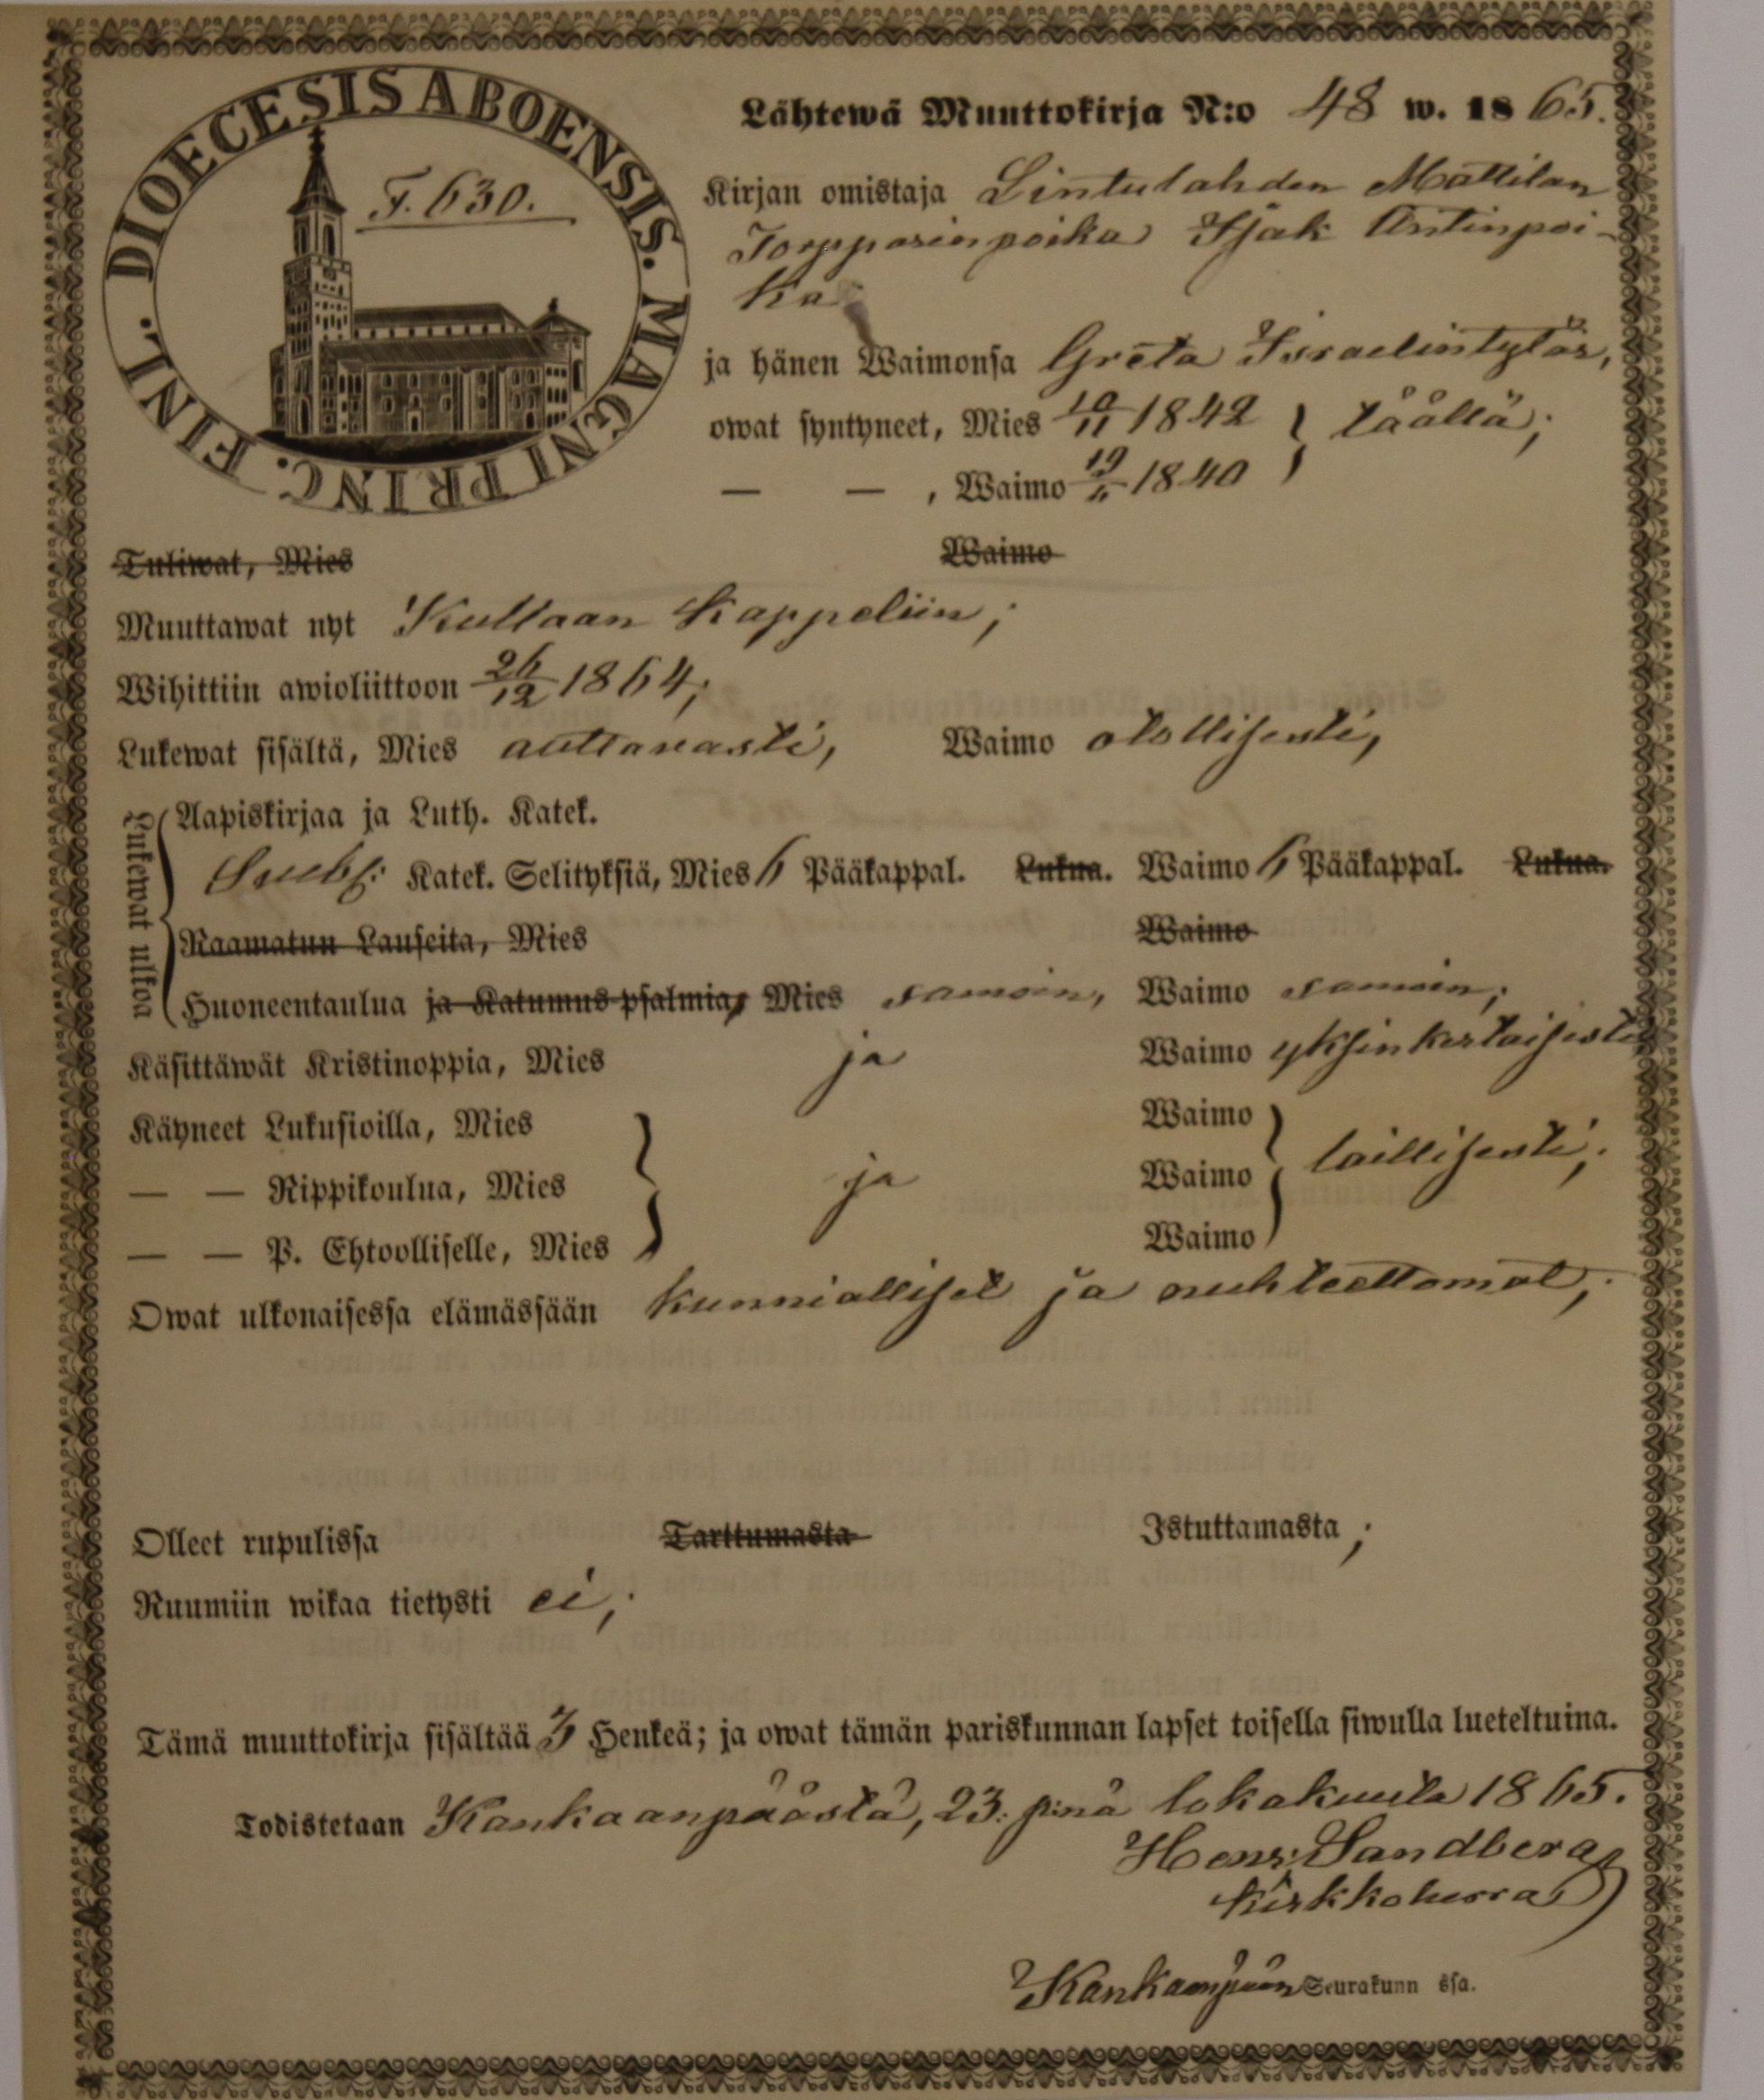 DIOECESIS ABOENSIS. MAGNI PRINC. FINL.
F. 630.
Lähtewä Muuttokirja N:o 48 w. 1865.
Kirjan omistaja Lintulahden Mattilan
Torpparinpoika Isak Antinpoi-
ka
ja hänen Waimonsa Greta Israelintytär,
owat syntyneet, Mies 10/11 1842 } täällä;
— — , Waimo 19/11 1840
Tuliwat, Mies Waimo
Muuttawat nyt Kullaan Kappeliin;
Wihittiin awioliittoon 26/12 1864;
Lukewat sisältä, Mies auttavasti, Waimo otollisesti,
Lukewat ulkoa
Aapiskirjaa ja Luth. Katek.
Svebel: Katek. Selityksiä, Mies 6 Pääkappal. Lukua. Waimo 6 Pääkappal. Lukua.
Raamatun Lauseita, Mies Waimo
Huoneentaulua ja Katumus-psalmia, Mies samoin, Waimo samoin;
Käsittäwät Kristinoppia, Mies ja Waimo yksinkertaisesti
Käyneet Lukusioilla, Mies Waimo
— — Rippikoulua, Mies } ja Waimo } laillisesti;
— — P. Ehtoolliselle, Mies Waimo
Owat ulkonaisessa elämässään kunnialliset ja nuhteettomat;
Olleet rupulissa Tarttumasta Istuttamasta;
Ruumiin wikaa tietysti ei;
Tämä muuttokirja sisältää 3 Henkeä; ja owat tämän pariskunnan lapset toisella siwulla lueteltuina.
Todistetaan Kankaanpäästä, 23: p:nä lokakuuta 1865.
Henr. Sandberg
kirkkoherra
Kankaanpään Seurakunn ssa.